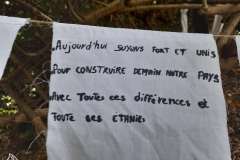 .Aujourd'hui suyons fort et unis
.Pour construire demain notre pays
.Avec toutes ces différences et
toute ses ethnies